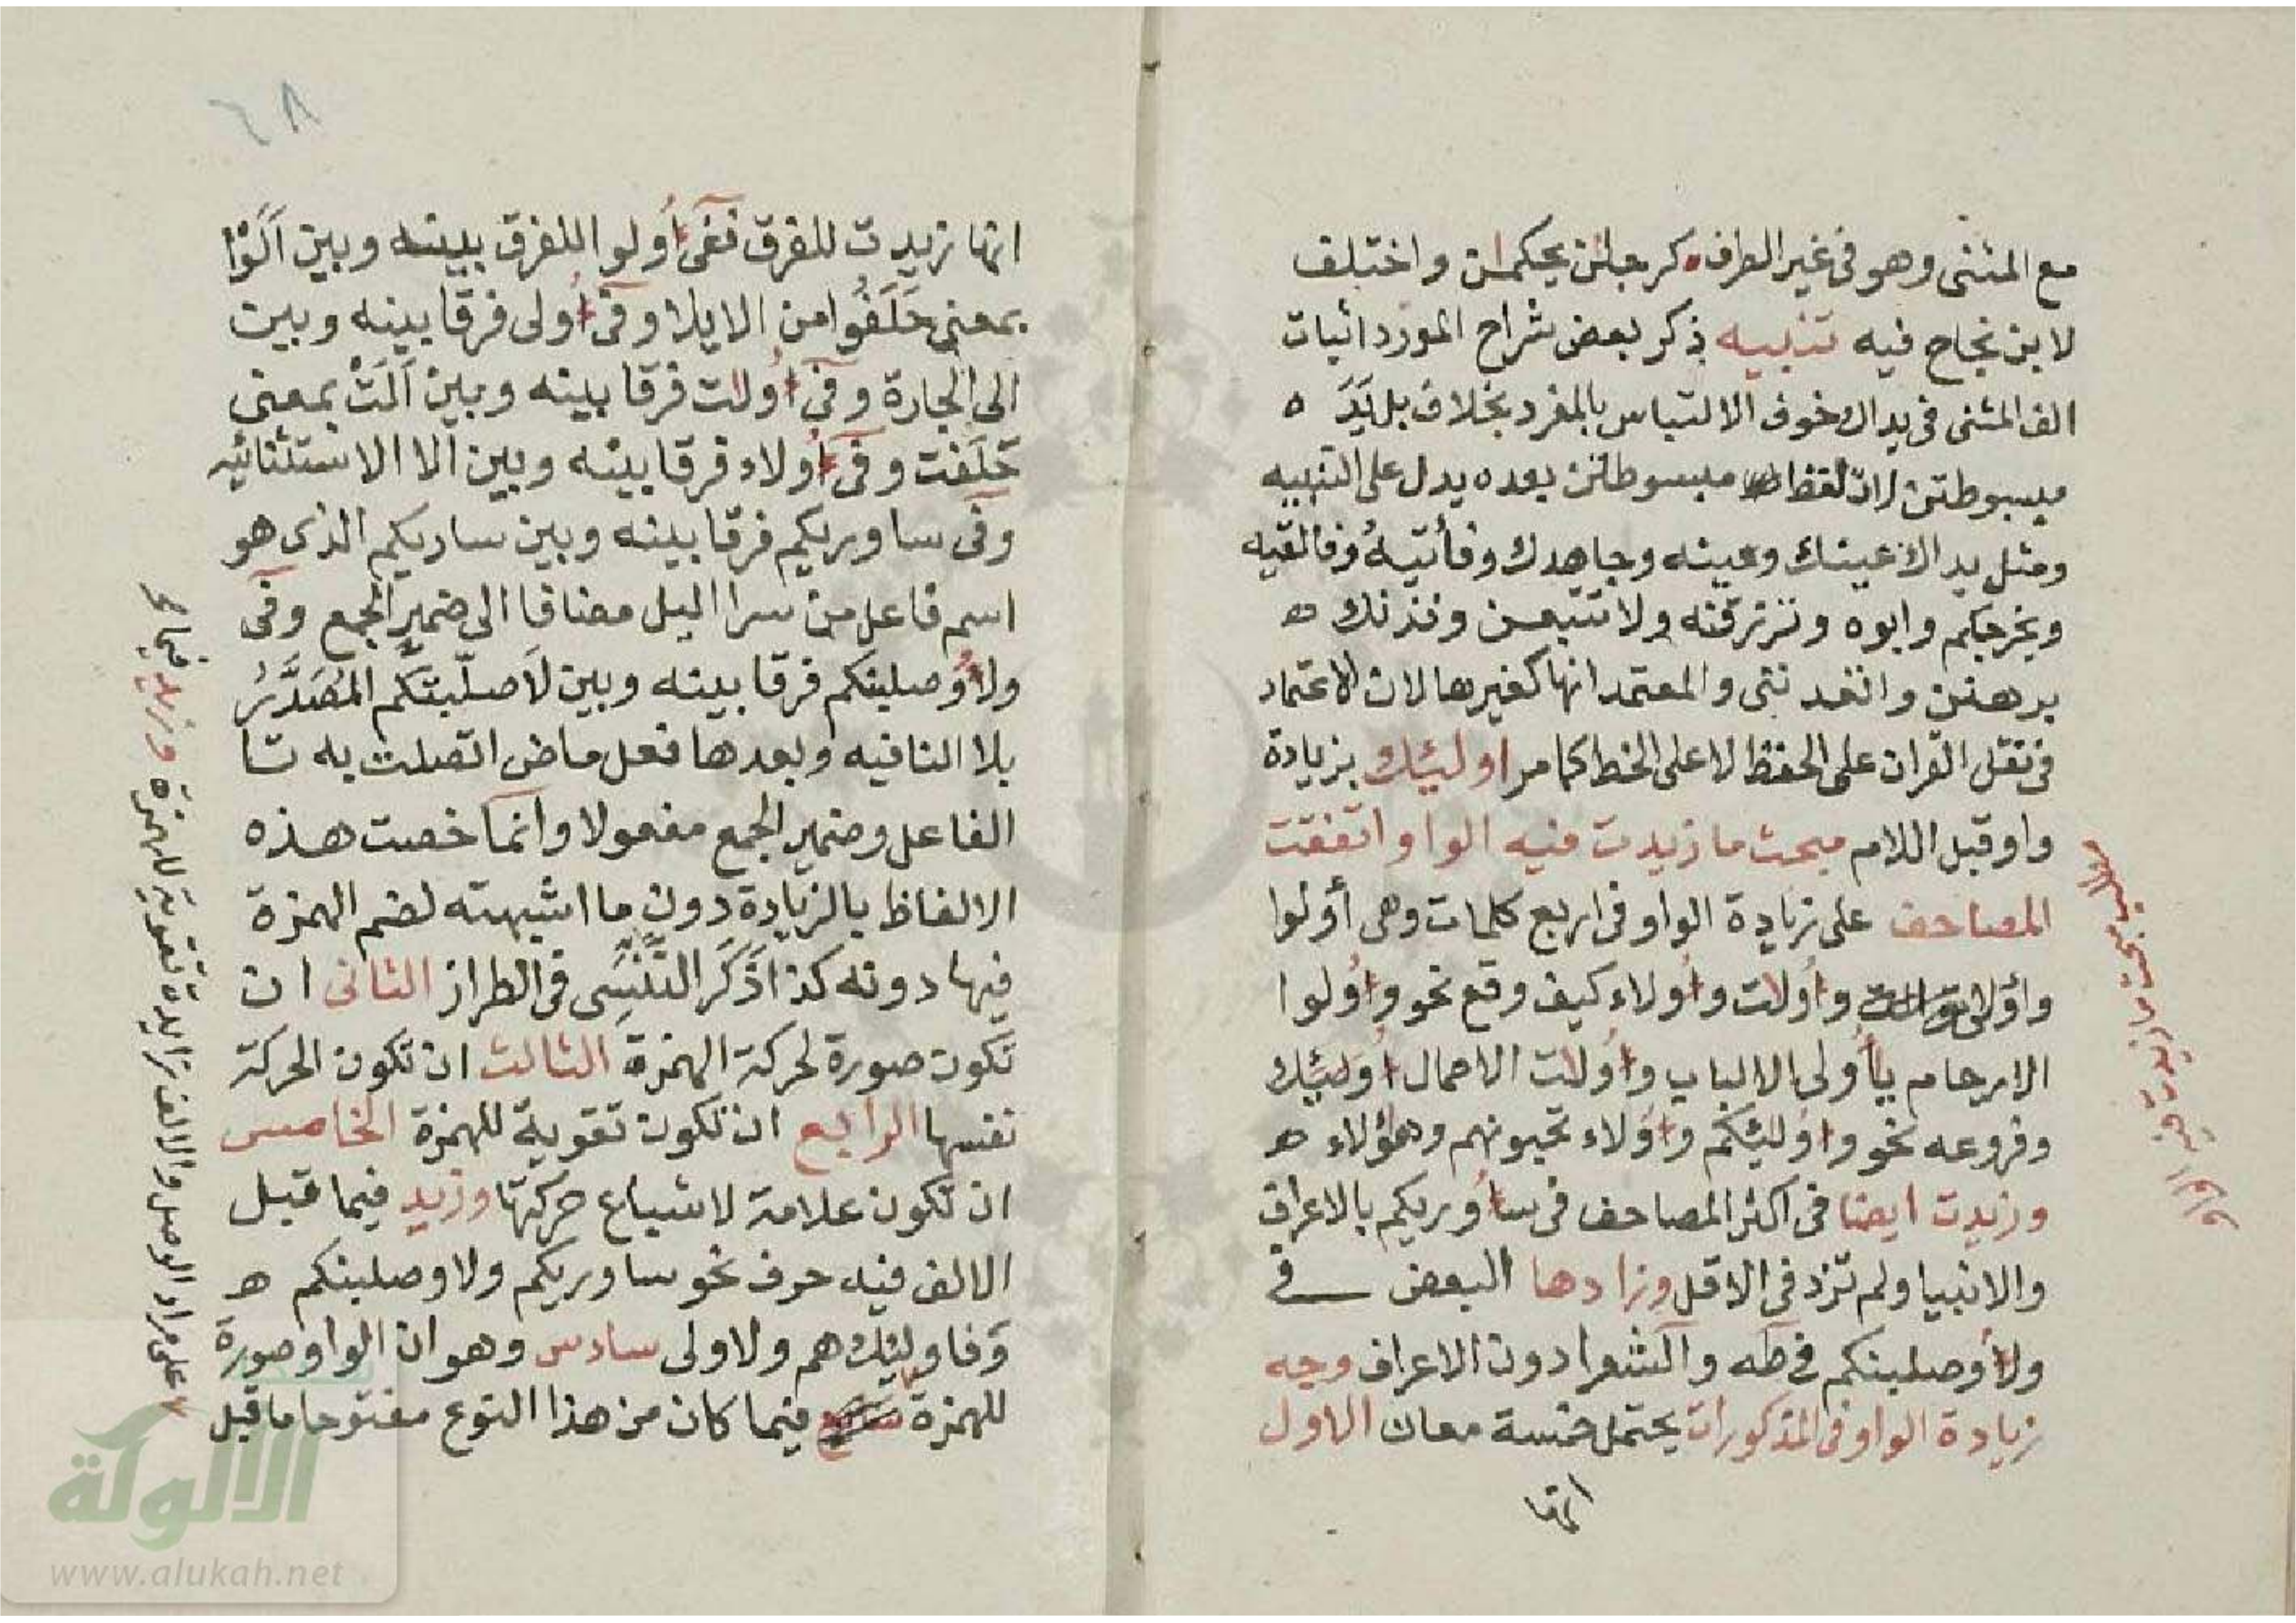 مع المثنى وهو فى غير الطرف كرجلن يحكمان واختلف
لابن نجاح فيه تنبيه ذكر بعض شراح المورد اثبات
الف المثنى فى يداك خوف الالتباس بالمفرد بخلاف بل يَدَ ه
مبسوطتن لان لفظ مبسوطتن بعده يدل على التنبيه
ومثل يداك عينك وعينه وجاهدك وفأتيهُ وفالقيه
ويخرجكم وابوه وترزقنه ولا تتبعن وفذنك ه
برهنن والمعتمد انها كغيرها لان الاعتماد
فى نقل القران على الحفظ لا على الخط كما مر اوليٕك بزيادة
واو قبل اللام مبحث ما زيدت فيه الواو اتفقت
المصاحف على زيادة الواو فى اربع كلمات وهى أولوا
وأولى وأولات وأولاء كيف وقع نحو وأولوا
الارحام يأولى الالباب وأولت الاحمال أوليٕك
وفروعه نحو واوليٕكم واولاء تحبونهم وهؤلاء ه
وزيدت ايضا فى اكثر المصاحف فى سأوريكم بالاعراف
والانبيا ولم تزد فى الاقل وزادها البعض فى
ولأوصلبنكم فى طه والشعرا دون الاعراف وجه
زيادة الواو فى المذكورات يحتمل خمسة معان الاول
انها
مبحث ما زيدت فيه الواو
٤٨
انها زيدت للفرق ففى أولوا للفرق بينه وبين اَلَوْا
بمعنى حَلَفُوا من الايلا وفى أولى فرقا بينه وبين
الى الجارة وفى أولات فرقا بينه وبين اَلَتْ بمعنى
حَلَفت وفى أولاء فرقا بينه وبين الا الاستثنائيه
وفى ساوريكم فرقا بينه وبين ساريكم الذى هو
اسم فاعل من سرا اليل مضافا الى ضمير الجمع وفى
ولأوصلبنكم فرقا بينه وبين لاَ صلّبتكم المُصَدَّرُ
بلا النافيه وبعدها فعل ماض اتصلت به تا
الفاعل وضمير الجمع مفعولا وانما خصت هذه
الالفاظ بالزيادة دون ما اشبهته لضم الهمزة
فيها دونه كذا ذَكَرَ التَّنَسِى فى الطراز الثانى ان
تكون صورة لحركة الهمزة الثالث ان تكون الحركة
نفسها الرابع ان تكون تقوية للهمزة الخامس
ان تكون علامة لاشباع حركتها وزيد فيما قبل
الالف فيه حرف نحو ساوريكم ولاوصلبنكم ه
وفاوليٕك هم ولاولى سادس وهو ان الواو صورة
للهمزة فيما كان من هذا النوع مفتوحا ما قبل
على مراد الوصل والالف زايدة تقوية للهمزة وزيد فيها
الالوكة
www.alukah.net